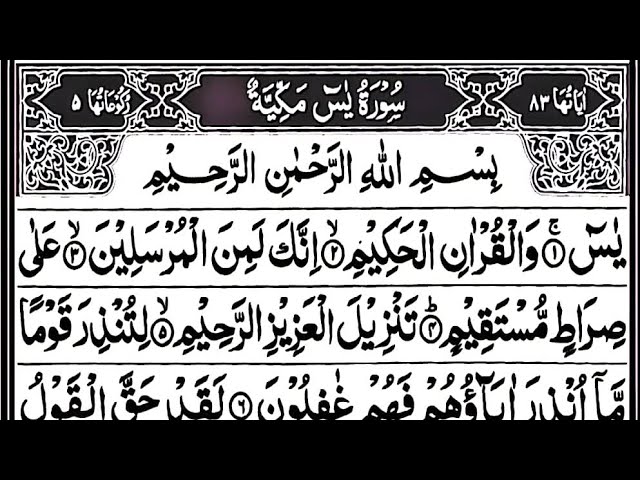 اٰیَاتُهَا ۸۳ سُوْرَةُ یٰسٓ مَكِّیَّةٌ رُكُوْعَاتُهَا ۵
بِسْمِ اللّٰهِ الرَّحْمٰنِ الرَّحِیْمِ
یٰسٓ ۚ﴿۱﴾ وَالْقُرْاٰنِ الْحَكِیْمِ ۙ﴿۲﴾ اِنَّكَ لَمِنَ الْمُرْسَلِیْنَ ۙ﴿۳﴾ عَلٰی
صِرَاطٍ مُّسْتَقِیْمٍ ؕ﴿۴﴾ تَنْزِیْلَ الْعَزِیْزِ الرَّحِیْمِ ۙ﴿۵﴾ لِتُنْذِرَ قَوْمًا
مَّاۤ اُنْذِرَ اٰبَآؤُهُمْ فَهُمْ غٰفِلُوْنَ ﴿۶﴾ لَقَدْ حَقَّ الْقَوْلُ